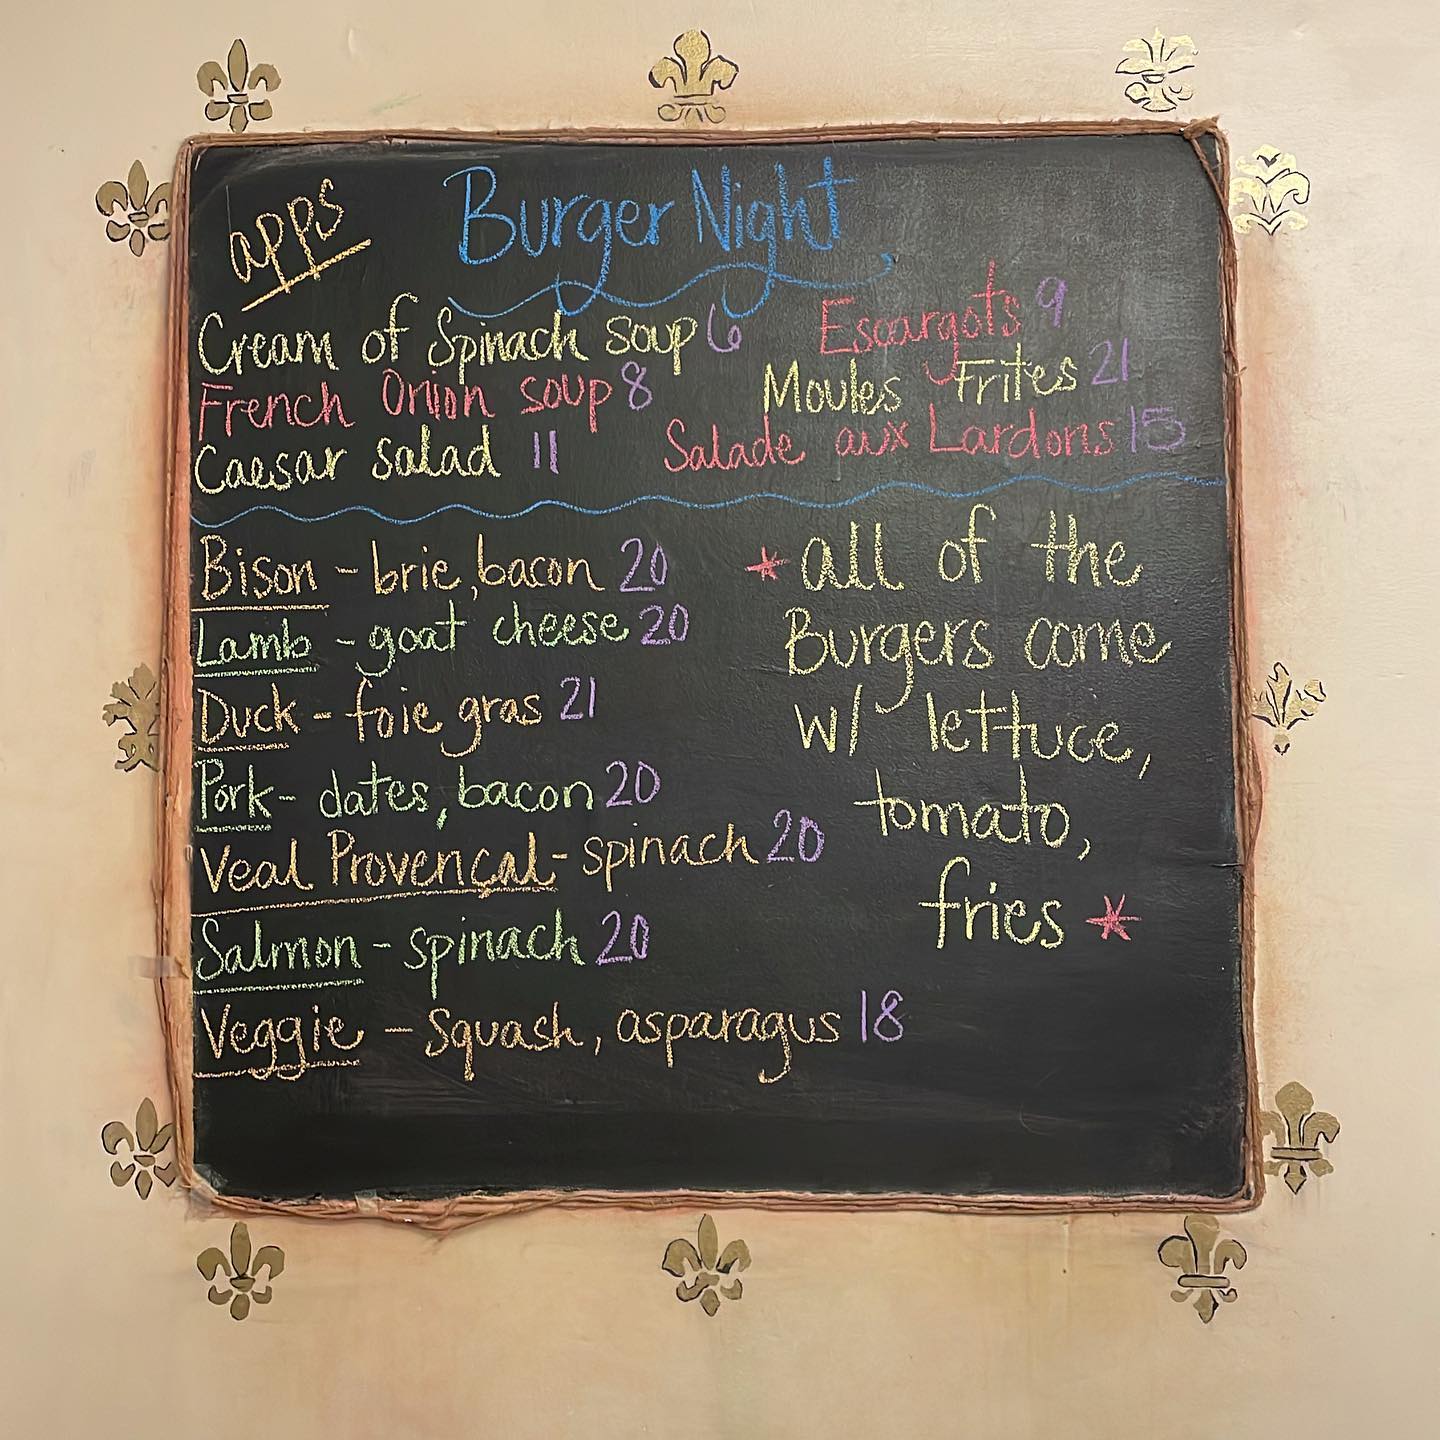 apps
Burger Night
Cream of Spinach soup 6
French Onion soup 8
Caesar salad 11
Escargots 9
Moules Frites 21
Salade aux Lardons 15
Bison - brie, bacon 20
Lamb - goat cheese 20
Duck - foie gras 21
Pork - dates, bacon 20
Veal Provençal - spinach 20
Salmon - spinach 20
Veggie - Squash, asparagus 18
* all of the
Burgers come
w/ lettuce,
tomato,
fries *